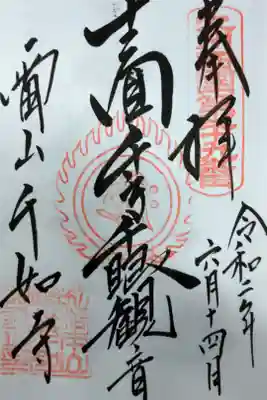 奉拝
令和二年
六月十四日
十一面千手千眼観音
雷山千如寺